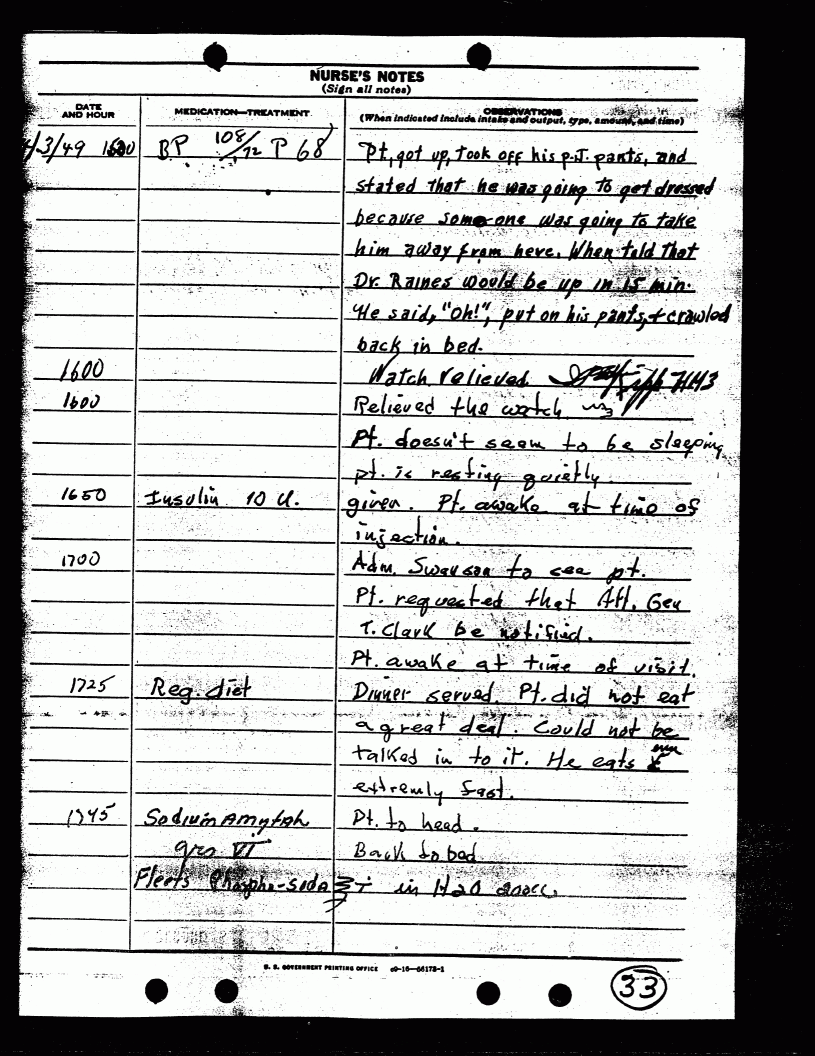 NURSE'S NOTES
(Sign all notes)
DATE AND HOUR
MEDICATION—TREATMENT
OBSERVATIONS
(When indicated include intake and output, type, amount, and time)
4/3/49 BP 108/72 P 68 Pt. got up, took off his p.J. pants, and
stated that he was going to get dressed
because someone was going to take
him away from here. When told that
Dr. Raines would be up in 15 min.
He said, "Oh!", put on his pants, + crawled
back in bed.
1600 Watch relieved.
1600 Relieved the watch
Pt. doesn't seem to be sleeping
pt. is resting quietly.
1650 Insulin 10 U. given. Pt. awake at time of
injection.
1700 Adm. Swanson to see pt.
Pt. requested that Att. Gen
T. Clark be notified.
Pt. awake at time of visit.
1725 Reg. diet Dinner served. Pt. did not eat
a great deal. Could not be
talked in to it. He eats
extremly fast.
1745 Sodium Amytah Pt. to head.
grs VI Back to bed
Fleets Phospho-Soda ʒ i in H2O 200cc.
U. S. GOVERNMENT PRINTING OFFICE c9-16—66173-1
33